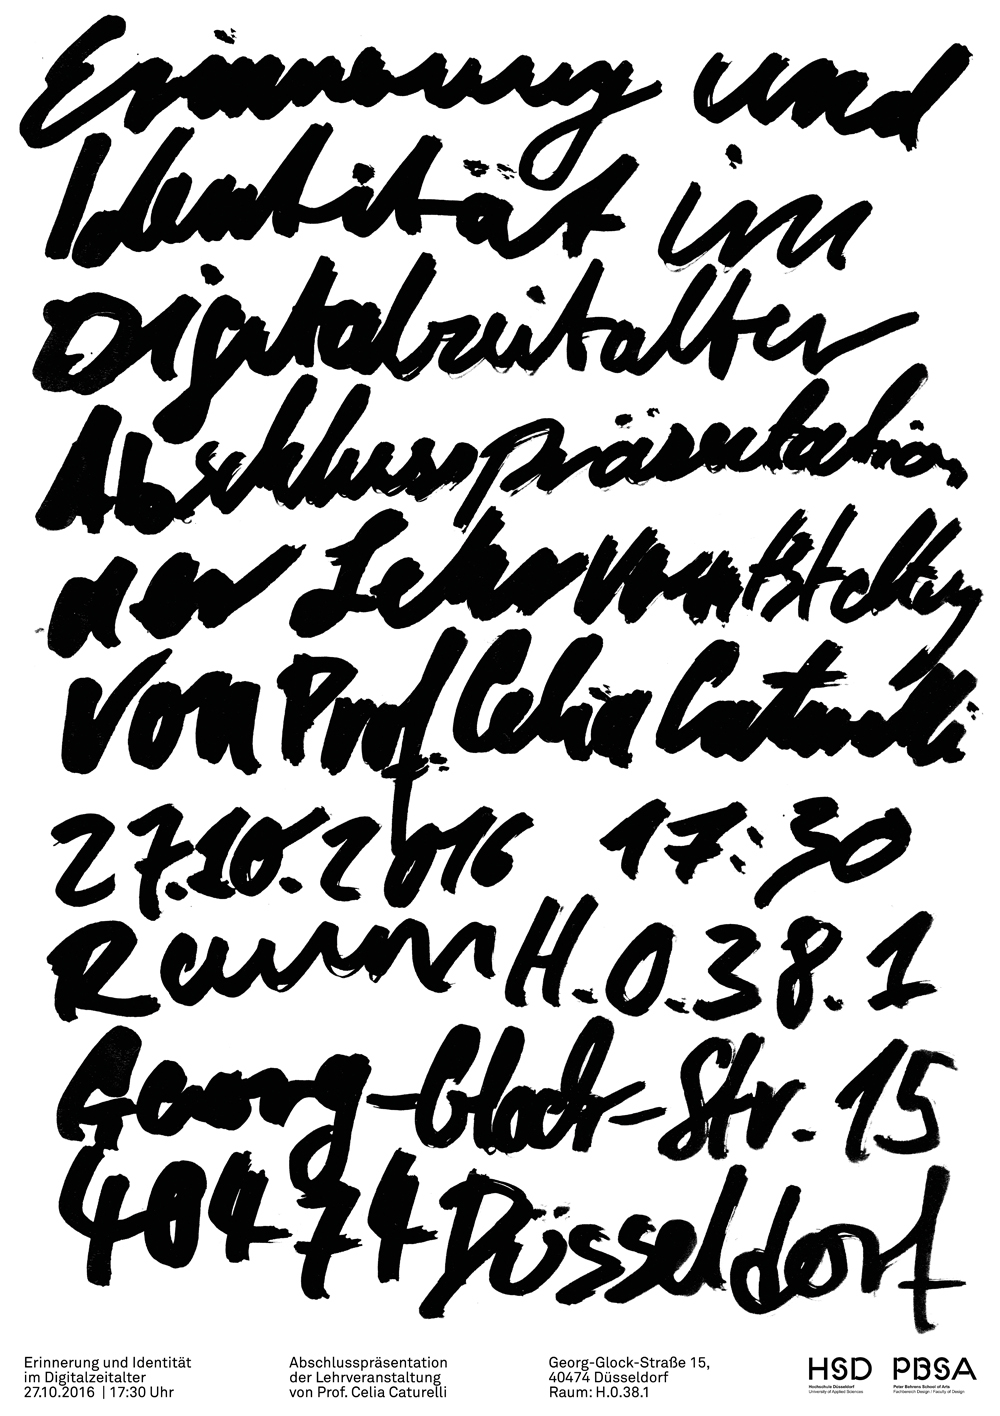 Erinnerung und
Identität im
Digitalzeitalter
Abschlusspräsentation
der Lehrveranstaltung
von Prof. Celia Caturelli
27.10.2016 17:30
Raum H.0.38.1
Georg-Glock-Str. 15
40474 Düsseldorf
Erinnerung und Identität
im Digitalzeitalter
27.10.2016 | 17:30 Uhr
Abschlusspräsentation
der Lehrveranstaltung
von Prof. Celia Caturelli
Georg-Glock-Straße 15,
40474 Düsseldorf
Raum: H.0.38.1
HSD
Hochschule Düsseldorf
University of Applied Sciences
PBSA
Peter Behrens School of Arts
Fachbereich Design / Faculty of Design